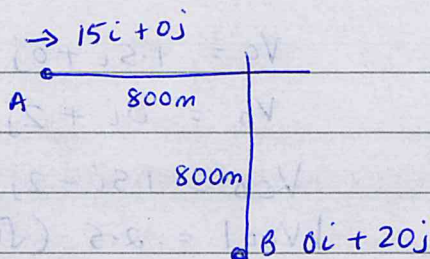 → 15i + 0j
A
800m
800m
B 0i + 20j